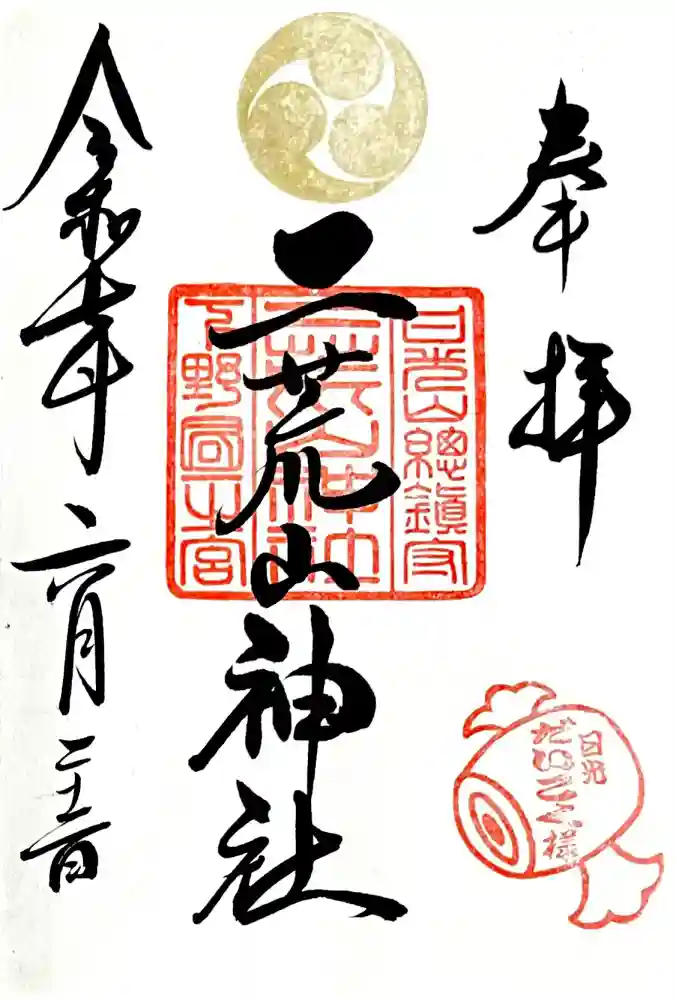 奉拝
日光山總鎮守
二荒山神社
下野國一之宮
二荒山神社
令和七年六月
日光
だいこく様